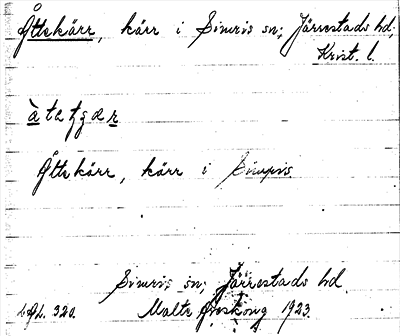 Åttekärr, kärr i Simris sn; Järrestads hd;
Krist. l.
àtetʒær
Åttekärr, kärr i Simris
Simris sn; Järrestads hd.
320. Malte Areskoug 1923.